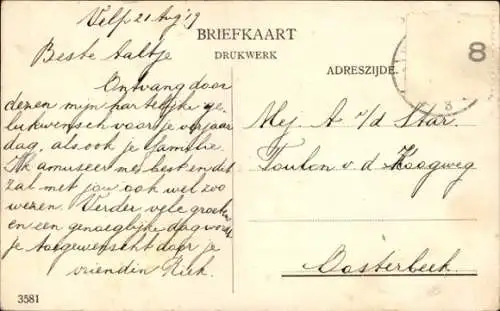 Velp 21 Aug '19
BRIEFKAART
DRUKWERK
ADRESZIJDE.
8
8
Beste Aaltje
Ontvang door
dezen mijn hartelijke ge-
lukwensch voor je verjaar
dag, als ook je familie.
Ik amuseer me best en dit
zal met jou ook wel zoo
wezen. Verder vele groeten
en een genoegelijke dag wordt
je toegewenscht door je
vriendin Riek.
Mej. A v/d Star.
Toulon v. d. Koogweg
Oosterbeek.
3581